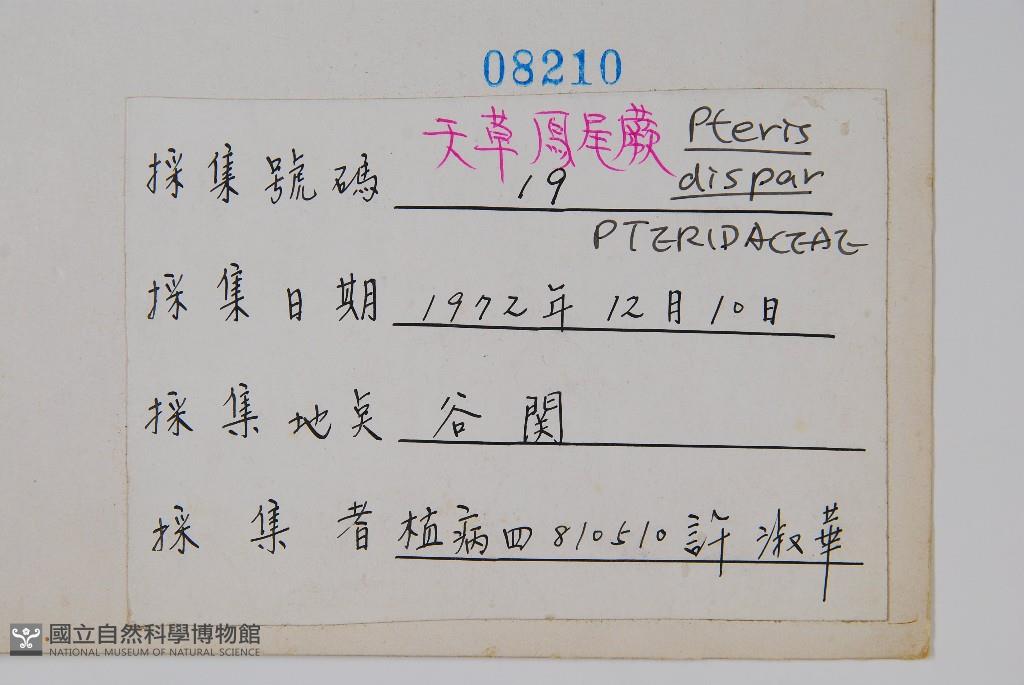 08210
天草鳳尾蕨 Pteris
dispar
採集號碼 19
PTERIDACEAE
採集日期 1972年12月10日
採集地点 谷関
採集者 植病四 810510 許淑華
國立自然科學博物館
NATIONAL MUSEUM OF NATURAL SCIENCE